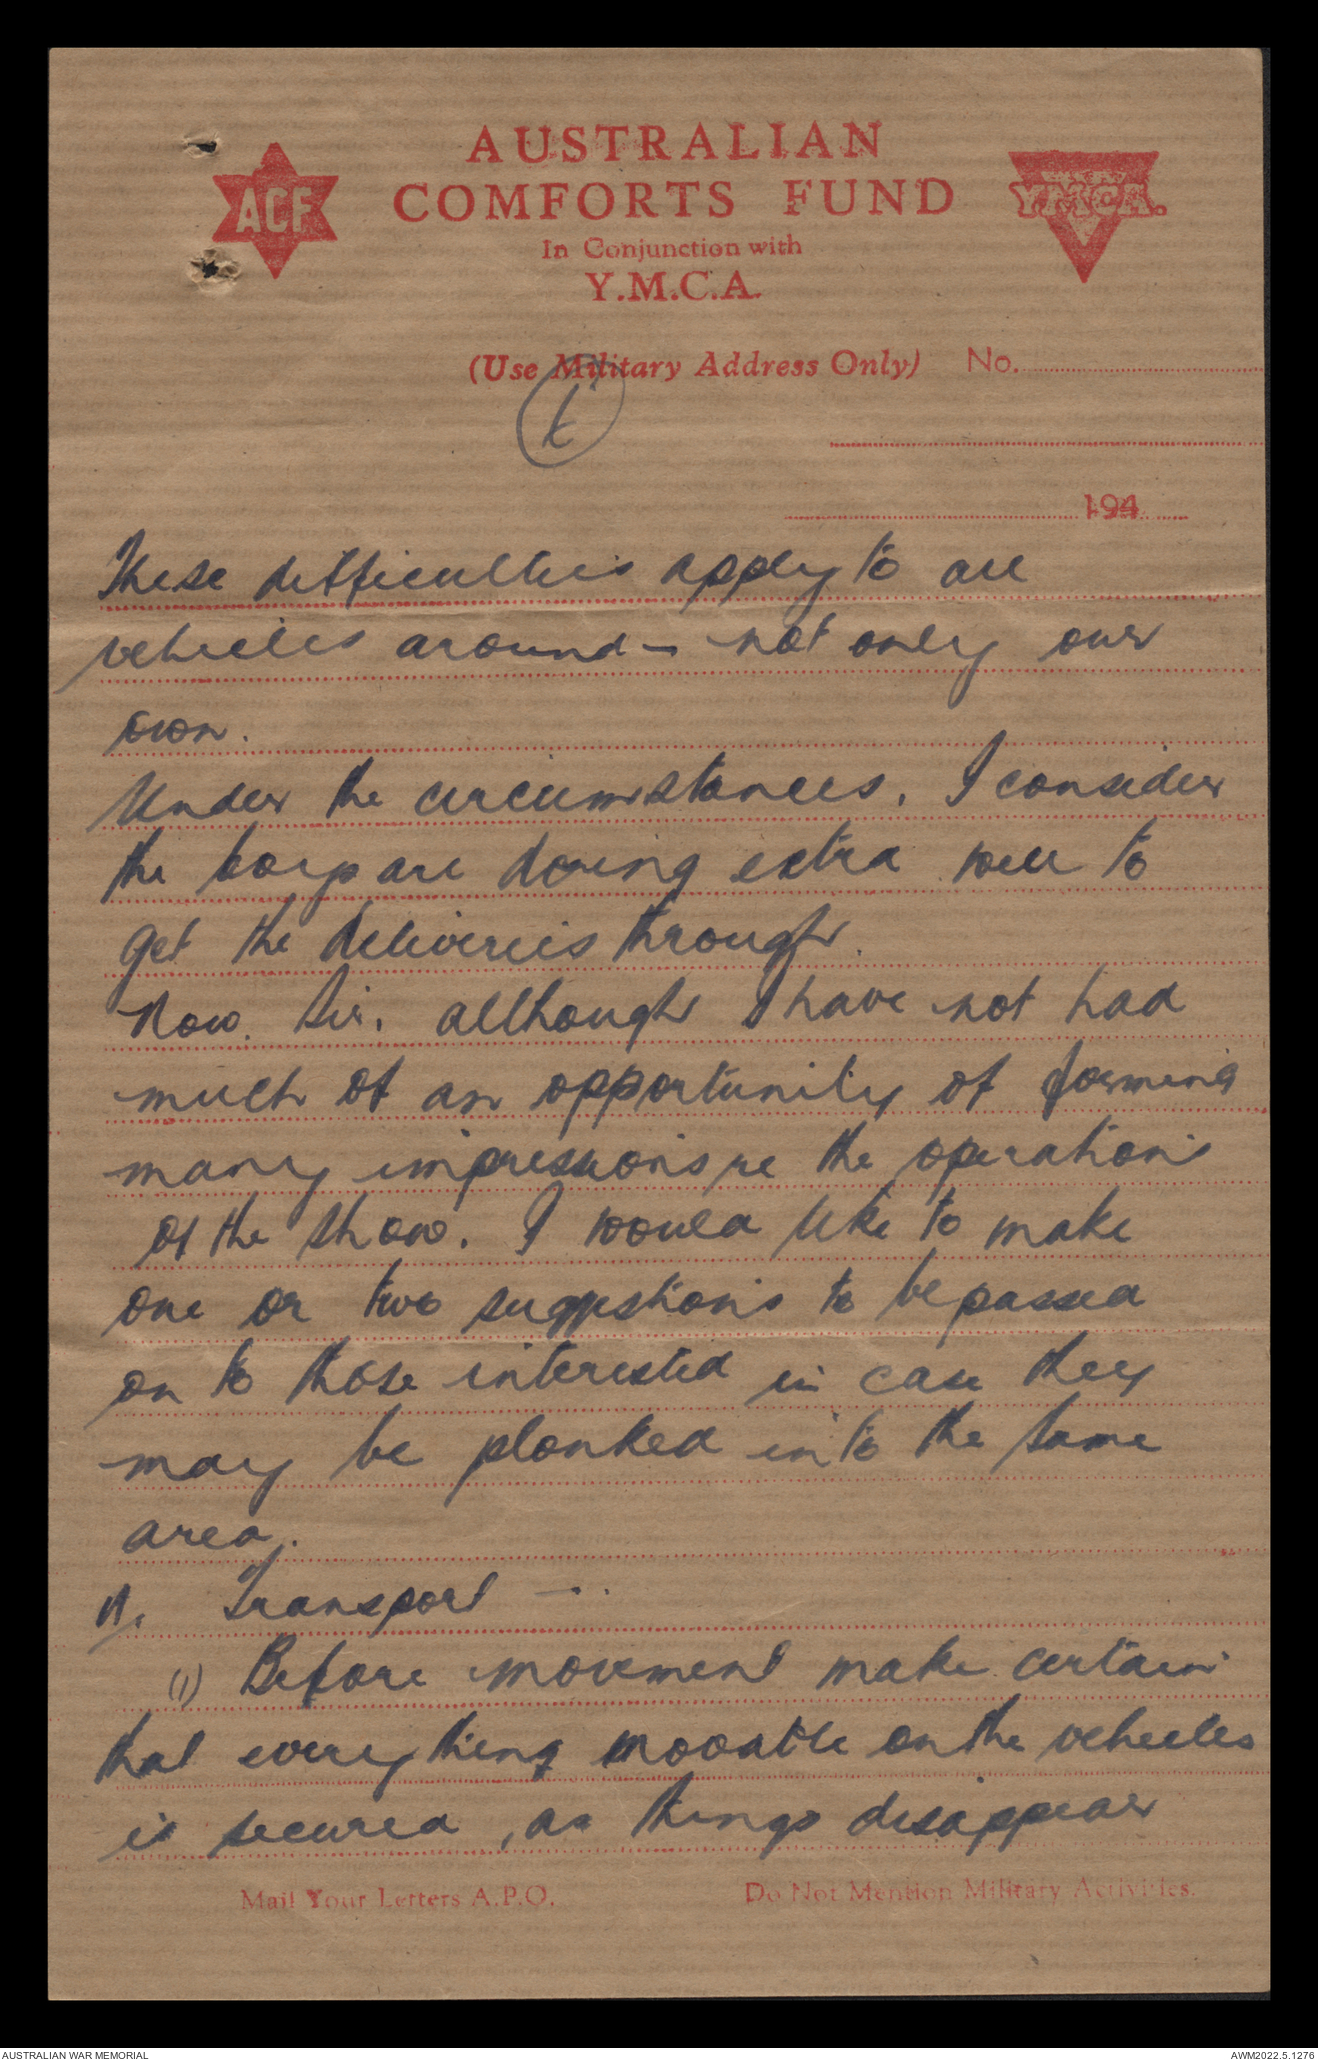 AUSTRALIAN
COMFORTS FUND
In Conjunction with
Y.M.C.A.
ACF
Y.M.C.A.
(Use Military Address Only) No.
194
These difficulties apply to all
vehicles around - not only our
own.
Under the circumstances. I consider
the boys are doing extra well to
get the deliveries through.
Now. Sir. although I have not had
much of an opportunity of forming
many impressions re the operations
of the show. I would like to make
one or two suggestions to be passed
on to those interested in case they
may be plonked into the same
area.
A. Transport -.
(1) Before movement make certain
that everything movable on the vehicles
is secured, as things disappear
Mail Your Letters A.P.O.
Do Not Mention Military Activities.
AUSTRALIAN WAR MEMORIAL
AWM2022.5.1276